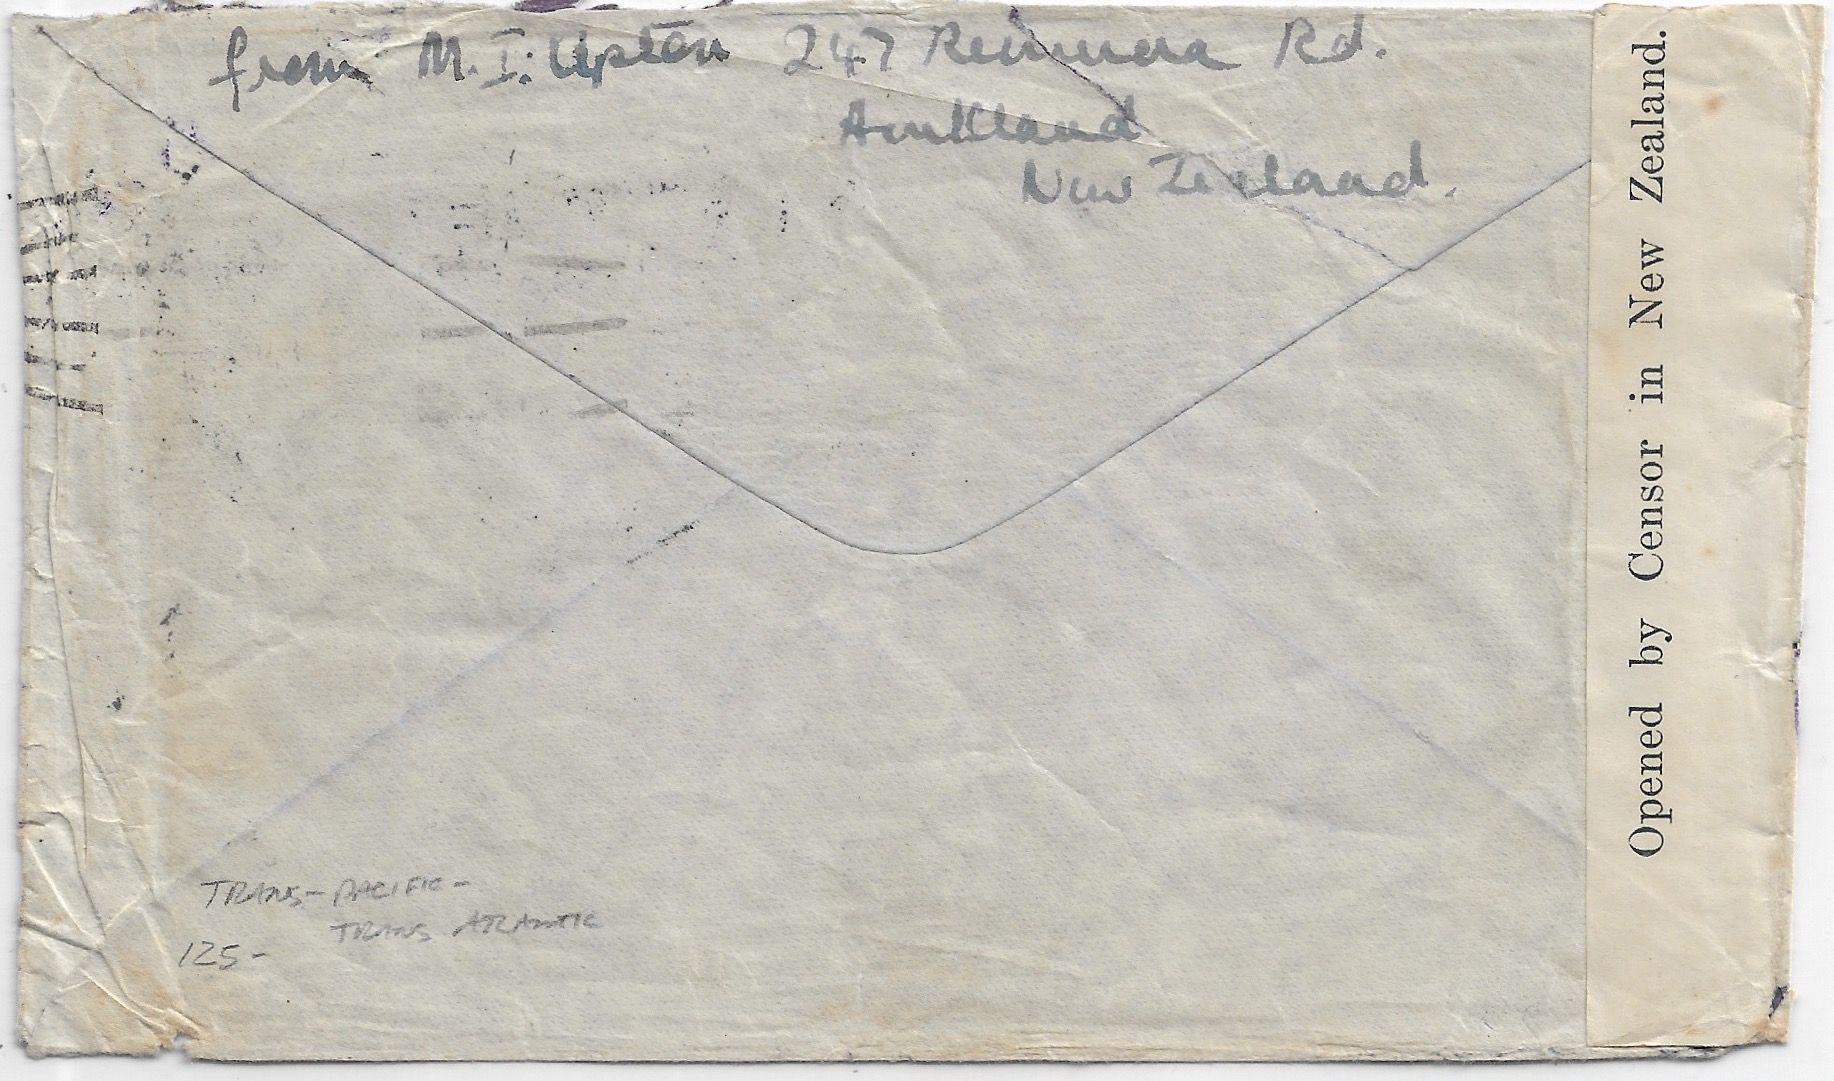 from M. I. Upton 247 Remuera Rd.
Auckland
New Zealand.
Opened by Censor in New Zealand.
TRANS-PACIFIC-
TRANS ATLANTIC
125-